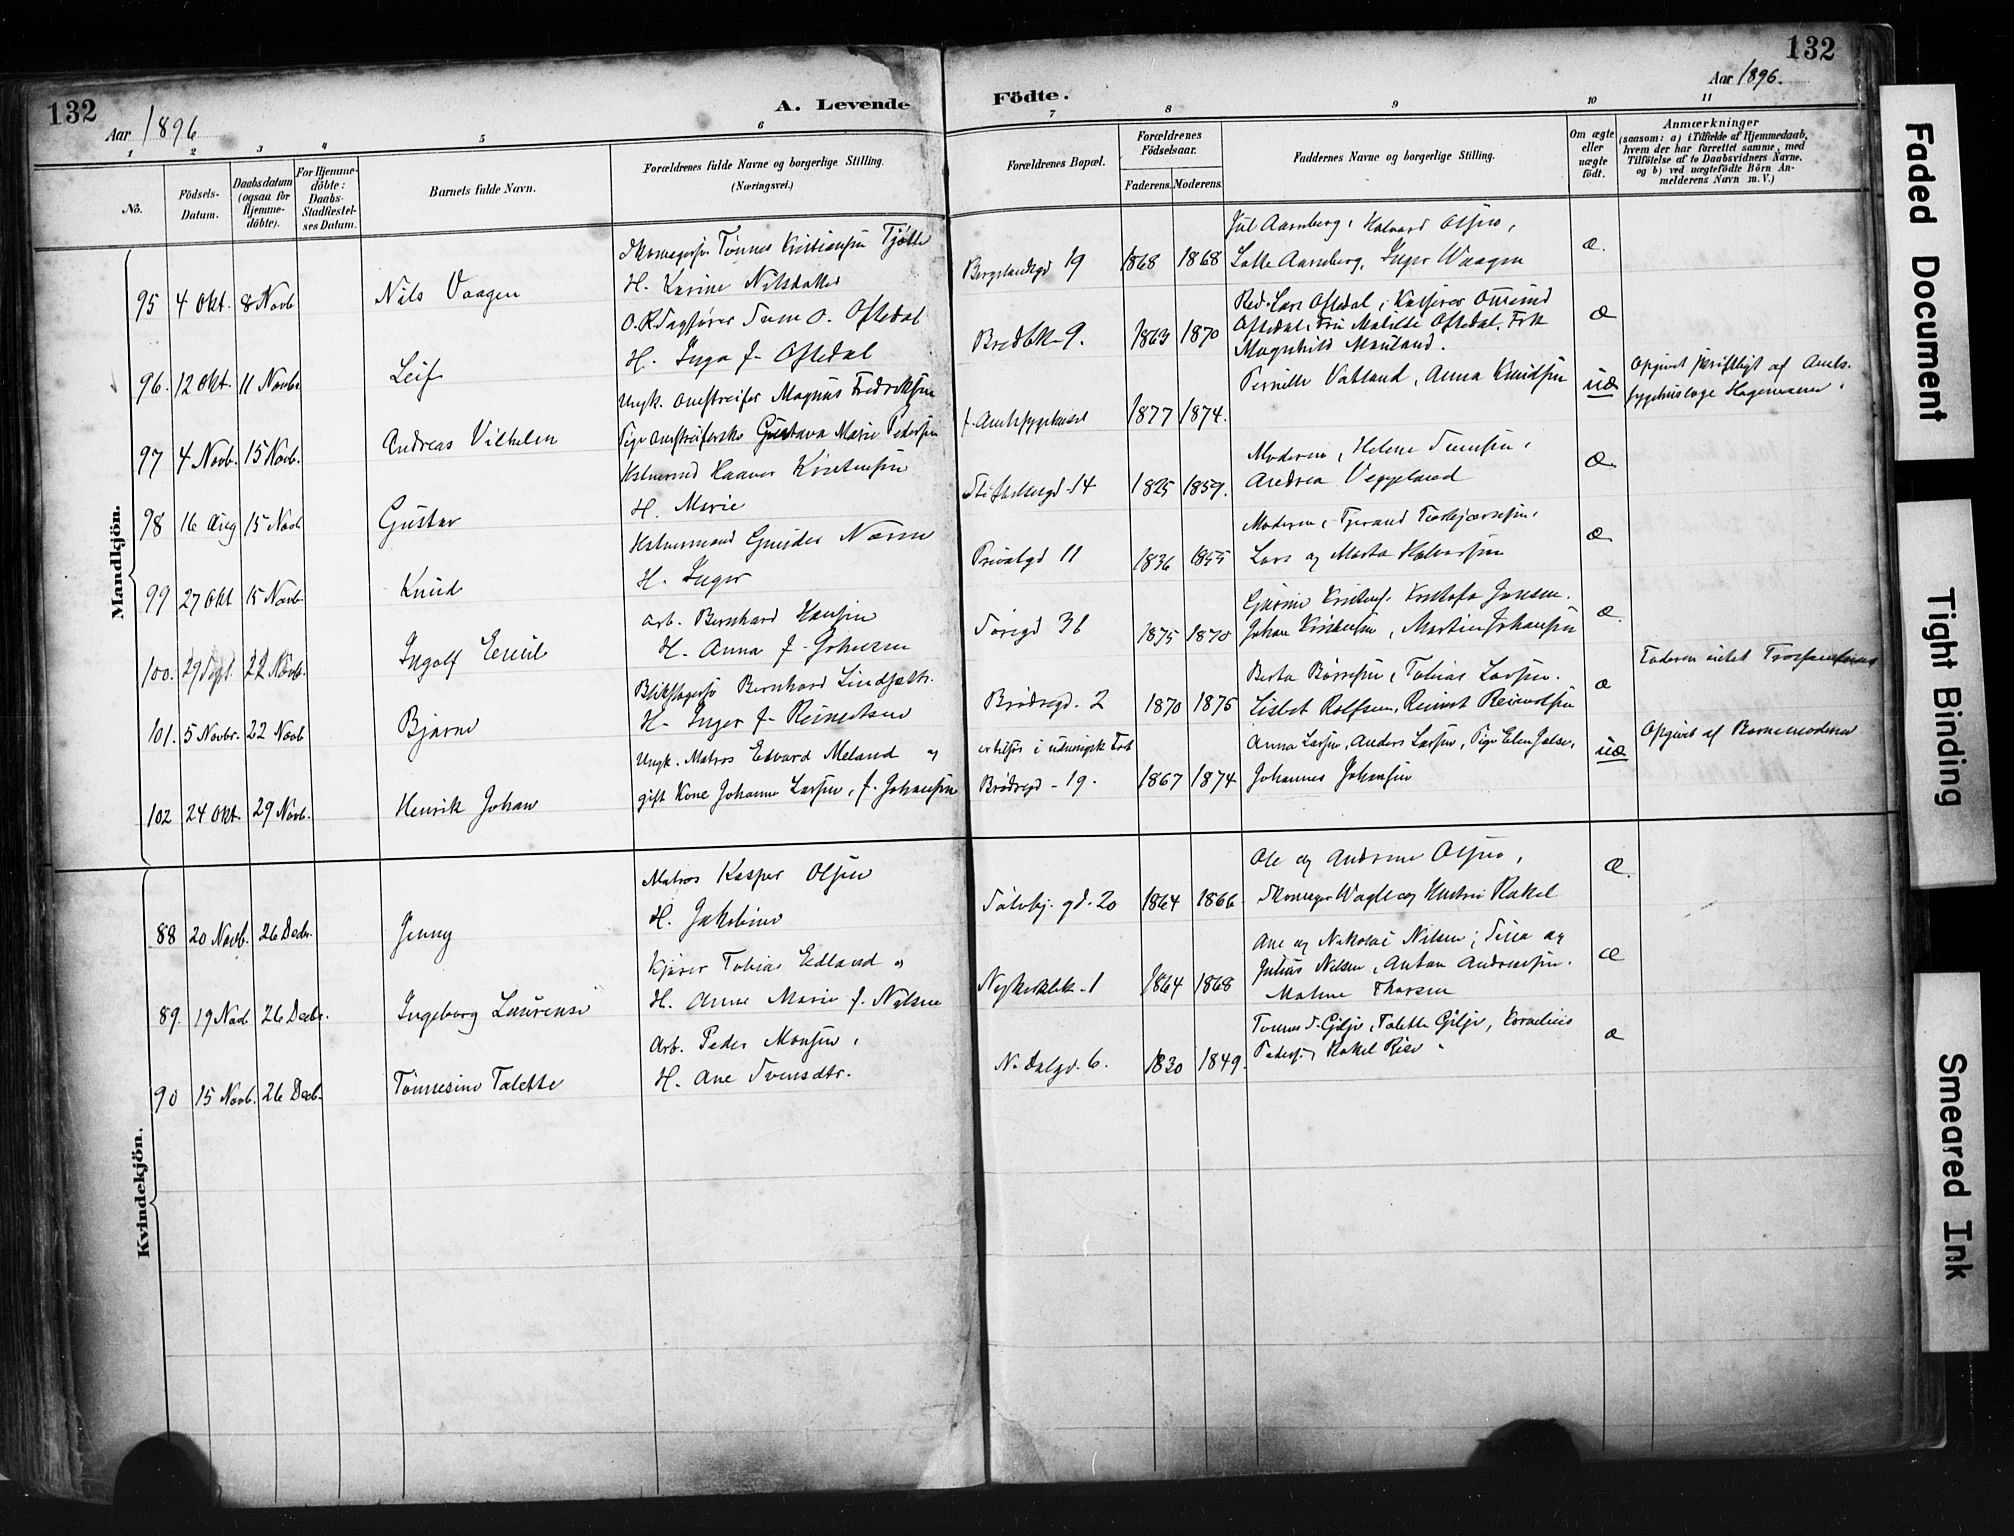 132
132
Aar 1896
A. Levende Födte.
Aar 1896.
1 2 3 4 5 6 7 8 9 10 11
No.
Födsels-
Datum.
Daabsdatum
(ogsaa for
Hjemme-
döbte).
For Hjemme-
döbte:
Daabs-
Stadfæstel-
ses Datum.
Barnets fulde Navn.
Forældrenes fulde Navne og borgerlige Stilling.
(Næringsvei.)
Forældrenes Bopæl.
Forældrenes
Födselsaar.
Faderens. Moderens.
Faddernes Navne og borgerlige Stilling.
Om ægte
eller
uægte
født.
Anmærkninger
(saasom: a) i Tilfælde af Hjemmedaab,
hvem der har forrettet samme, med
Tilföielse af to Daabsvidners Navne.
og b) ved uægtefödte Börn An-
melderens Navn m. V.)
Mandkjön.
95 4 Okt. 8 Novb Nils Vaagen
Tønnes Kristiansen Tjøtta
H. Karine Nilsdatter
Bergelandsgd 19 1868 1868
Jul Aarnberg, Halvard Olsen,
Lotte Aarnberg, Inger Waagen
æ.
96. 12 Okt. 11 Novbr Leif
O.R. Sagfører Sven O. Oftedal
H. Inga f. Oftedal
Bredbk 9. 1863 1870
Red. Lars Oftedal, Kasserer Omund
Oftedal, Fru Malilde Oftedal, Frk
Magnhild Mauland.
æ
97 4 Novb. 15 Novb. Andreas Vilhelm
Ungk. Omstreifer Magnus Fredriksen
Pige Omstreiferske Gustava Marie Pedersen
f. Amtssygehuset 1877 1874.
Pernille Vatland, Anna Knudsen
uæ
Opgivet skriftligt af Amts-
sygehuslæge Hagemann.
98 16 Aug 15 Novb Gustav
Haaver Kristensen
H. Marie
Stiftelsesgd. 14 1825 1857.
Moderen, Helene Svensen,
Andrea Veggeland
æ.
99 27 Okt 15 Novb. Knud
Gunder Nærem
H. Inger
Privatgd 11 1836 1855
Moderen, Tjerand Torbjørnsen,
Lars og Marta Halvorsen
æ.
100. 29 Sept. 22 Novb. Ingolf Emil
Arb. Bernhard Hansen
H. Anna f. Johnsen
Søregd 36 1875 1870
Johan Kristensen, Martin Johansen
æ.
101. 5 Novbr. 22 Novb Bjarne
Blikslagersv Bernhard Lindseth.
H. Inger f. Reinertsen
Brødregd. 2 1870 1875
Berta Børresen, Tobias Larsen.
Lisbet Rolfsen, Reinert Reinertsen
æ
Faderen intet Trossamfund
102 24 Okt. 29 Novb. Henrik Johan
Ungk. Matros Edvard Meland og
gift Kone Johanne Larsen, f. Johansen
i udenrigsk Fart
Brødregd - 19. 1867 1874
Anna Larsen, Anders Larsen, Pige Elen Jelsa,
Johannes Johansen
uæ
Opgivet af Barnemoderen
Kvindekjön.
88 20 Novb. 26 Decbr. Jenny
Matros Kasper Olsen
H. Jakobine
Sølvbj. gd. 20 1864 1866
Ole og Andrine Olsen,
Skomager Wagle og Hustru Rakel
æ.
89. 19 Novb 26 Decbr. Ingeborg Laurense
Kjører Tobias Edland og
H. Anne Marie f. Nilsen
Nykirkebk - 1 1864 1868
Ane og Nikolai Nilsen, Sina og
Julius Nilsen, Anton Andreassen.
Maline Thorsen
æ
90 15 Novb. 26 Decb. Tønnesine Talette
Arb. Peder Monsen,
H. Ane Svensdtr.
N. Dalgd. 6. 1830 1849.
Tønnes S. Gilje, Talette Gilje, Kornelius
Peders., Rakel Risa.
æ
Faded Document
Tight Binding
Smeared Ink